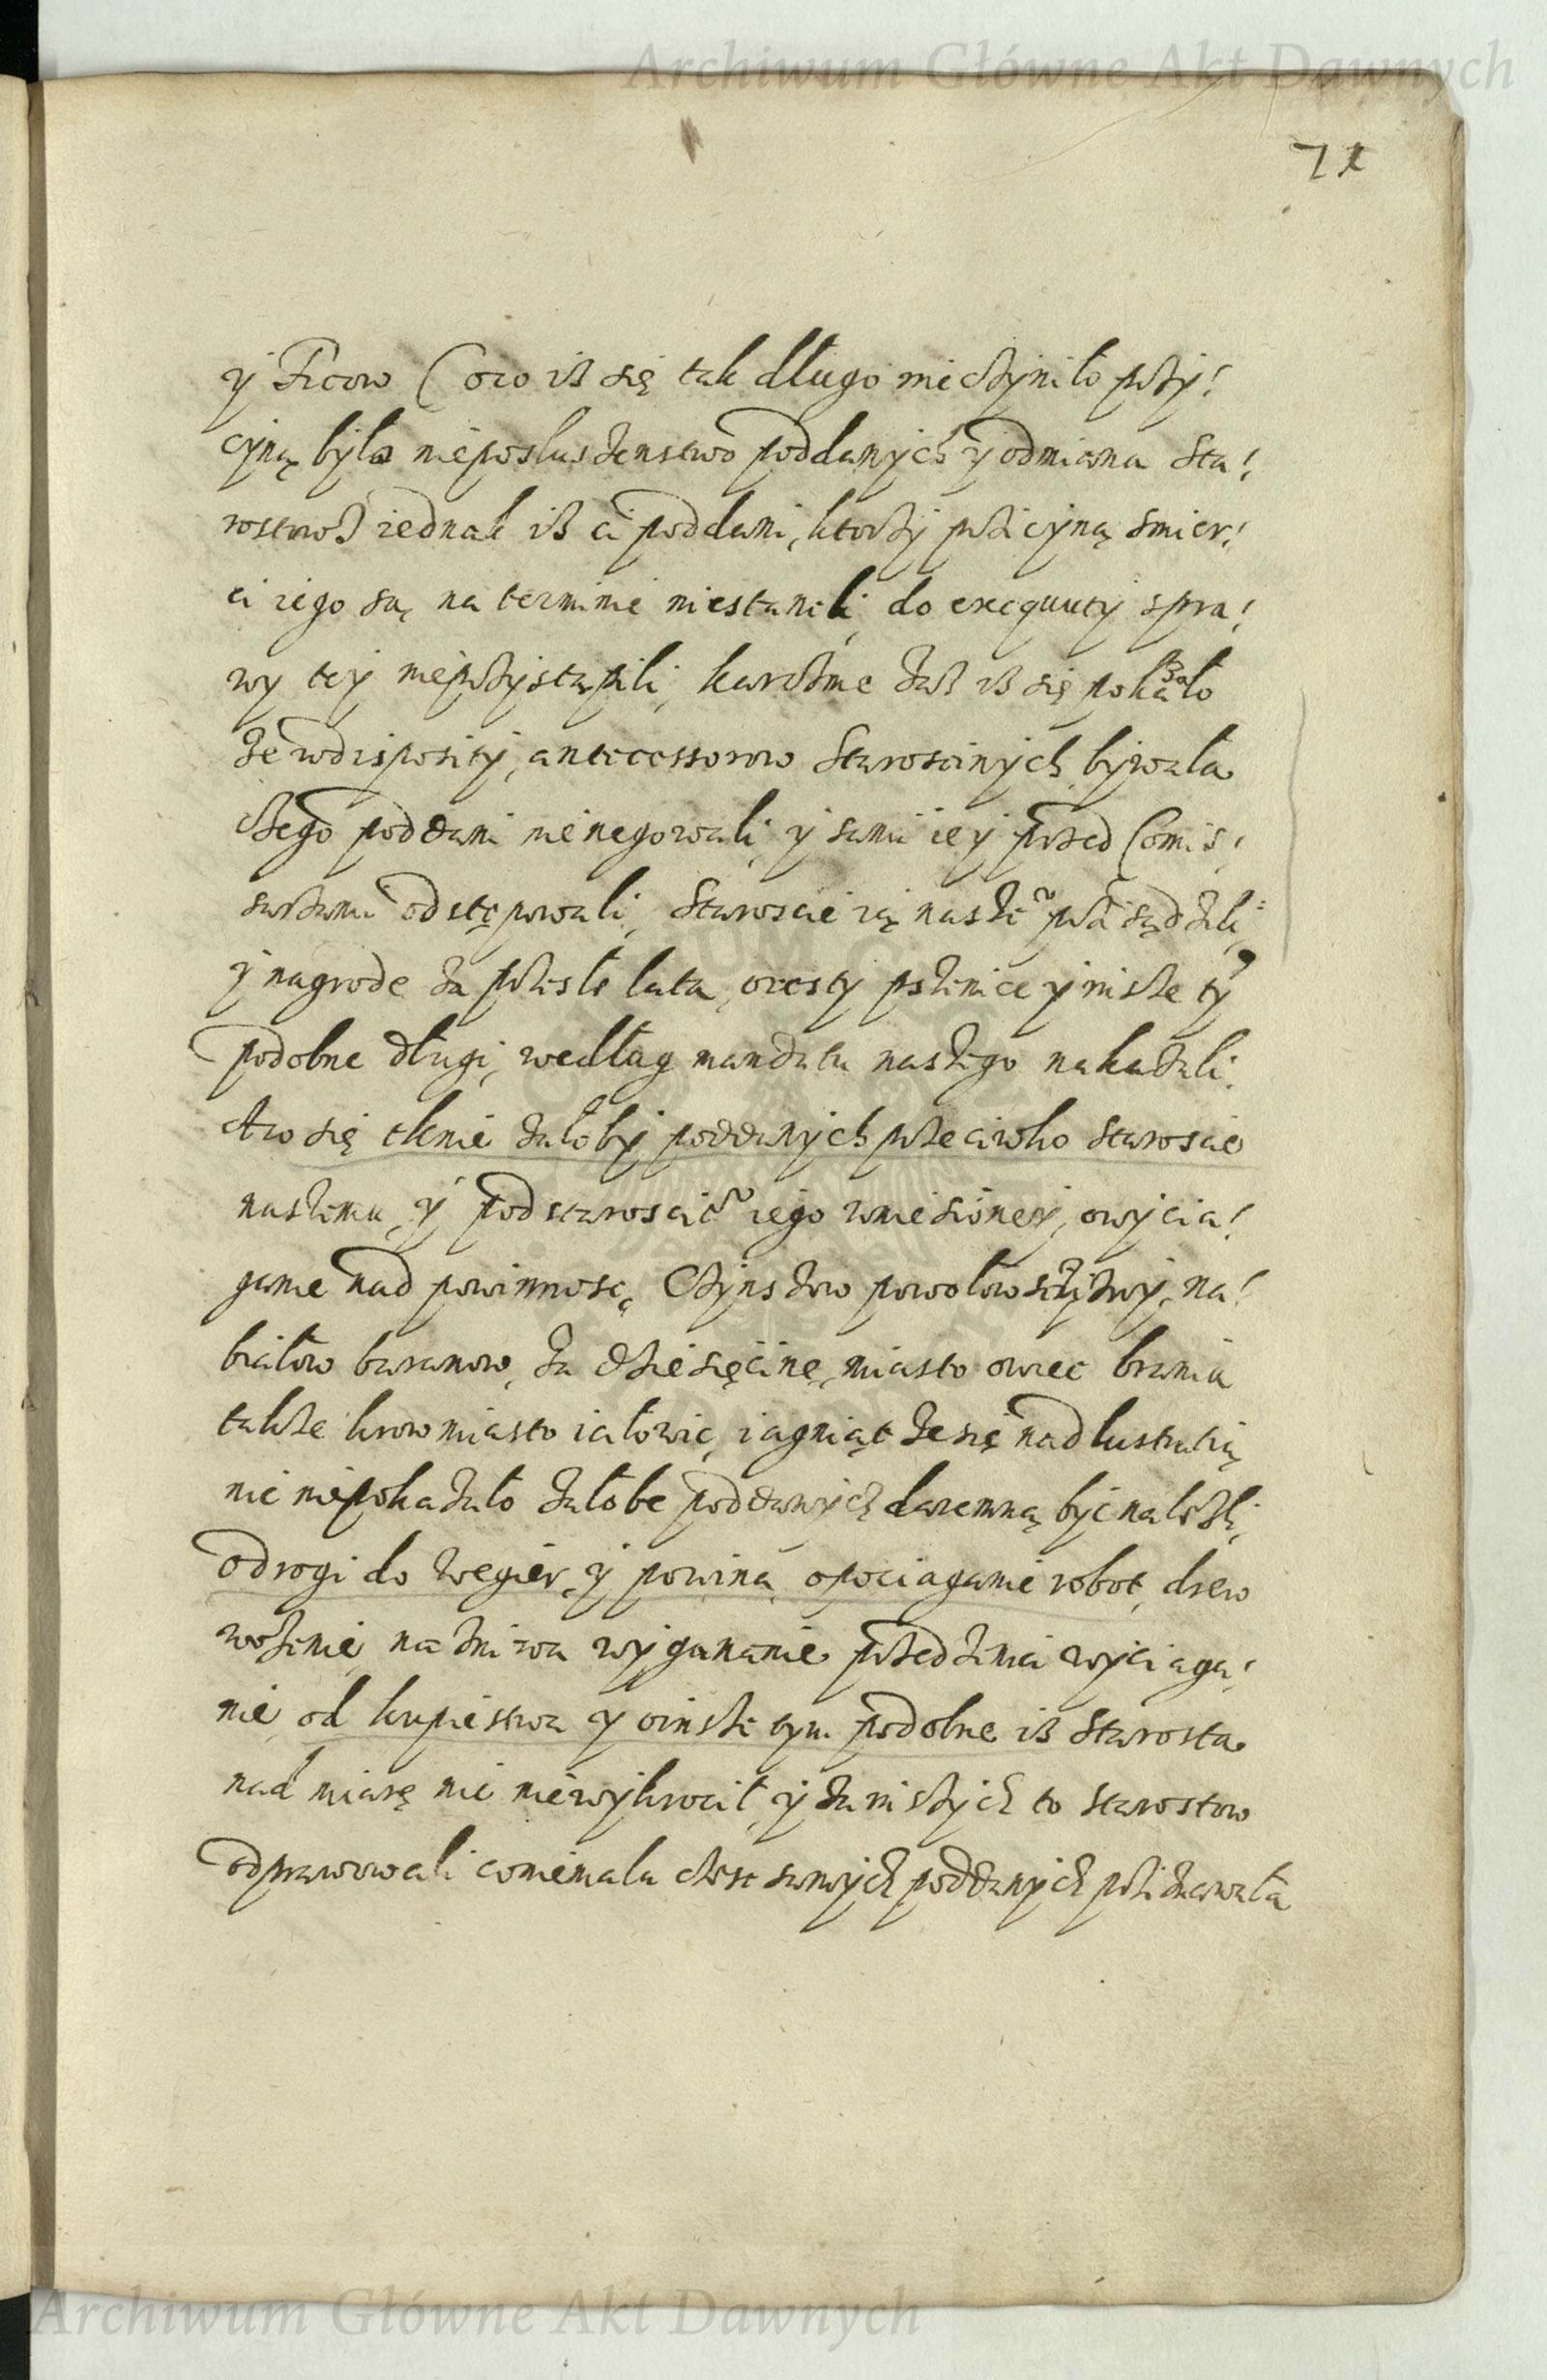 Archiwum Główne Akt Dawnych
71
y Ficow (oco iß się tak długo nie czyniło przy/
cyną była nieposłuszenstwo poddanych y odmiana Sta/
rostwo) iednak iß ci poddani, ktorzy przicyną smier/
ci iego są, na terminie niestaneli, do exequuty spra/
wy tey nieprzystąpili, karczme zaß iß się pokazało
że w disposity, antecessorow Staroscinych bywała
czego poddani nienegowali, y sami iey przed Comis/
sarzami odstępowali, Staroscie ią nasze prza sądzili,
y nagrode za przeszłe lata, oresty pszenice y insze ty
podobne długi, według mandatu naszego nakazali.
A co się tknie żałoby poddanych przeciwko Staroscie
naszemu, y podstarosciemu iego wniesioney, o wycia/
ganie nad powinnosc, Czynszow powołowszczyzny, na/
białow baranow, za dziesięcinę, miasto owiec brania
także krow miasto iałowic, iagniąt że się nad lustratią
nic niepokazało żałobe poddanych daremną byc nalezli,
o drogi do Węgier, y po wina, o pociąganie robot, drew
wożenie, na żniwa wyganianie przedzenia wyciąga/
nie, od kupiestwa y o insze tym podobne iß Starosta
nad miarę nic niewykrocił, y za inszych to Starostow
odprawowali co niemała część samych poddanych przyznawała
Archiwum Główne Akt Dawnych